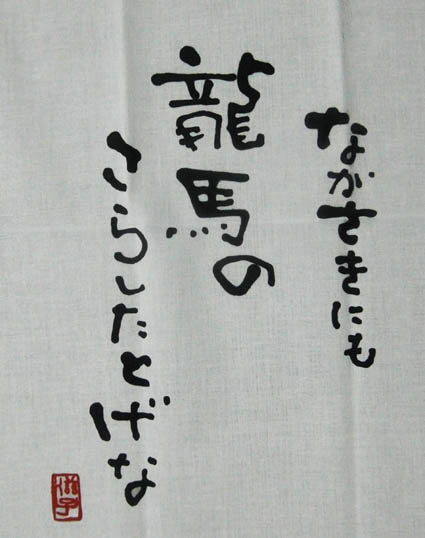 ながさきにも
龍馬の
さらしたとげな